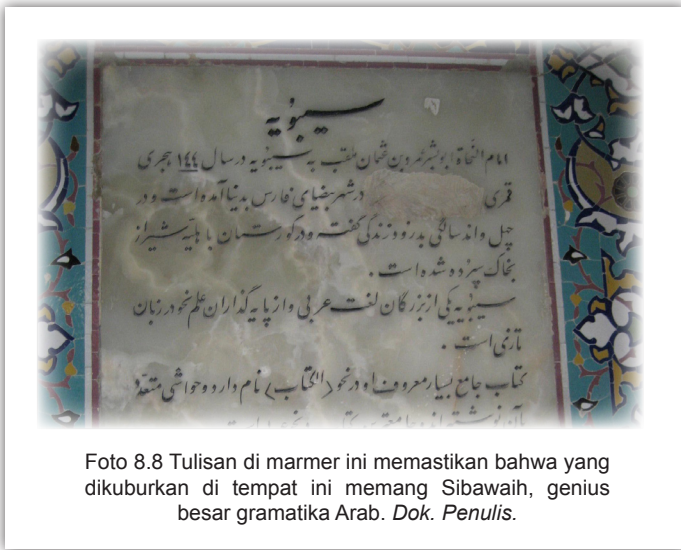 سیبُویه
امام النُّحاة ابوبشر عمرو بن عثمان ملقب به سیبویه در سال ۱۴۴ هجری
قمری در شهر بیضای فارس بدنیا آمده است و در
چهل و اند سالگی بدرود زندگی گفته و در گورستان باهلیّه شیراز
بخاک سپرده شده است .
سیبویه یکی از بزرگان لغت عربی و از پایه گذاران علم نحو در زبان
تازی است .
کتاب جامع بسیار معروف او در نحو (الکتاب) نام دارد و حواشی متعدّد
Foto 8.8 Tulisan di marmer ini memastikan bahwa yang
dikuburkan di tempat ini memang Sibawaih, genius
besar gramatika Arab. Dok. Penulis.